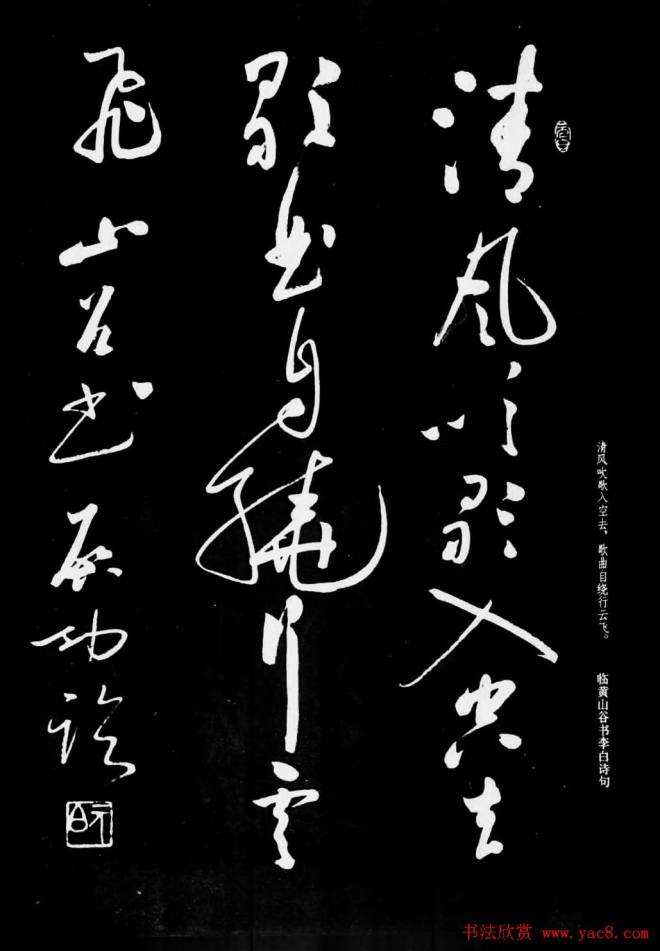 清風吹歌入空去
歌曲自繞行雲
飛 山谷書 啟功臨
清风吹歌入空去，歌曲自绕行云飞。
临黄山谷书李白诗句
书法欣赏 www.yac8.com